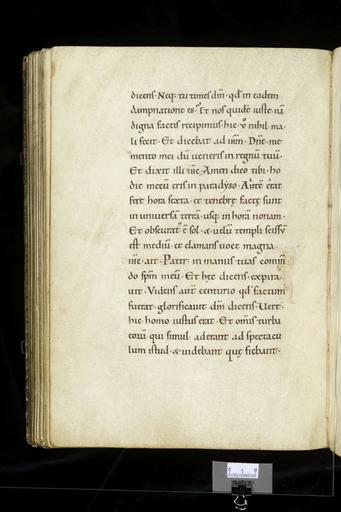 dicens· Neq; tu times dm̄· qd̓ in eadem
dampnatione es· Et nos quidē iuste· nā
digna factis recipimus· hic v̊ nihil ma-
li fecit· Et dicebat ad ihm̄· Dn̄e· me-
mento mei dū veneris in regnū tuū·
Et dixit illi ihc̄· Amen dico tibi· ho-
die mecū eris in paradyso· Autē erat
fere hora sexta· et tenebrę factę sunt
in universā terrā· usq; in horā nonam·
Et obscuratus ē sol· & velū templi scissū
est mediū· et clamans uoce magna
ihc̄· ait· Pater in manus tuas comm̄-
do sp̄m meū· Et hęc dicens· expira-
uit· Videns autē centurio qd̓ factum
fuerat· glorificauit dm̄ dicens· Vere
hic homo iustus erat· Et om̄is turba
eorū qui simul aderant ad spectacu-
lum istud· & uidebant quę fiebant·